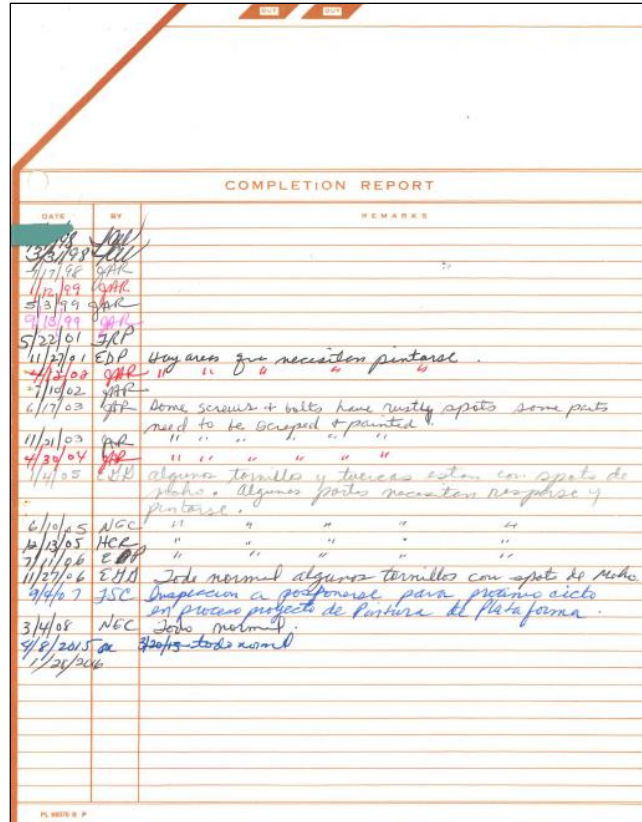 OUT OUT
COMPLETION REPORT
DATE BY REMARKS
3/3/98
7/17/98 JAR "
1/12/99 JAR
5/3/99 JAR
9/13/99 JAR
5/22/01 JRP
11/27/01 EDP Hay areas que necesitan pintarse.
4/12/02 JAR " " " " "
7/10/02 JAR
6/17/03 JAR Some screws + bolts have rustly spots some parts
need to be scraped + painted.
11/21/03 JAR " " " " " "
4/30/04 JAR " " " " " "
1/4/05 EHD algunos tornillos y tuercas estan con spots de
moho. Algunas partes necesitan rasparse y
pintarse.
6/10/05 NGC " " " " "
12/13/05 HCR " " " " "
7/11/06 " " " " "
11/27/06 EHD Todo normal algunos tornillos con spots de Moho.
9/4/07 JSC Inspeccion a posponerse para proximo ciclo
en proceso proyecto de Pintura de Plataforma.
3/4/08 NGC Todo normal.
4/8/2015 3/20/15 todo normal
1/28/2016
PL 66576 B P